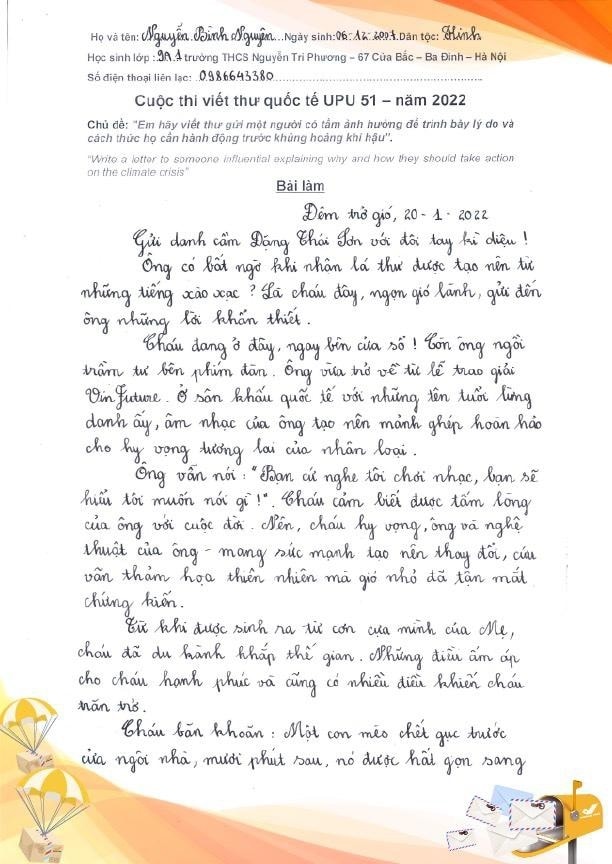 Họ và tên: Nguyễn Bình Nguyên Ngày sinh: 06.12.2007 Dân tộc: Kinh
Học sinh lớp: 9A1 trường THCS Nguyễn Tri Phương – 67 Cửa Bắc – Ba Đình – Hà Nội
Số điện thoại liên lạc: 0986643380
Cuộc thi viết thư quốc tế UPU 51 – năm 2022
Chủ đề: "Em hãy viết thư gửi một người có tầm ảnh hưởng để trình bày lý do và
cách thức họ cần hành động trước khủng hoảng khí hậu".
"Write a letter to someone influential explaining why and how they should take action
on the climate crisis"
Bài làm
Đêm trở gió, 20 - 1 - 2022
Gửi danh cầm Đặng Thái Sơn với đôi tay kì diệu !
Ông có bất ngờ khi nhận lá thư được tạo nên từ
những tiếng xào xạc ? Là cháu đây, ngọn gió lành, gửi đến
ông những lời khẩn thiết .
Cháu đang ở đây, ngay bên cửa sổ ! Còn ông ngồi
trầm tư bên phím đàn . Ông vừa trở về từ lễ trao giải
VinFuture . Ở sân khấu quốc tế với những tên tuổi lừng
danh ấy, âm nhạc của ông tạo nên mảnh ghép hoàn hảo
cho hy vọng tương lai của nhân loại .
Ông vẫn nói : "Bạn cứ nghe tôi chơi nhạc, bạn sẽ
hiểu tôi muốn nói gì !". Cháu cảm biết được tấm lòng
của ông với cuộc đời . Nên, cháu hy vọng, ông và nghệ
thuật của ông - mang sức mạnh tạo nên thay đổi, cứu
vãn thảm họa thiên nhiên mà gió nhỏ đã tận mắt
chứng kiến .
Từ khi được sinh ra từ cơn cựa mình của Mẹ,
cháu đã du hành khắp thế gian . Những điều ấm áp
cho cháu hạnh phúc và cũng có nhiều điều khiến cháu
trăn trở .
Cháu băn khoăn : Một con mèo chết gục trước
cửa ngôi nhà, mười phút sau, nó được hất gọn sang